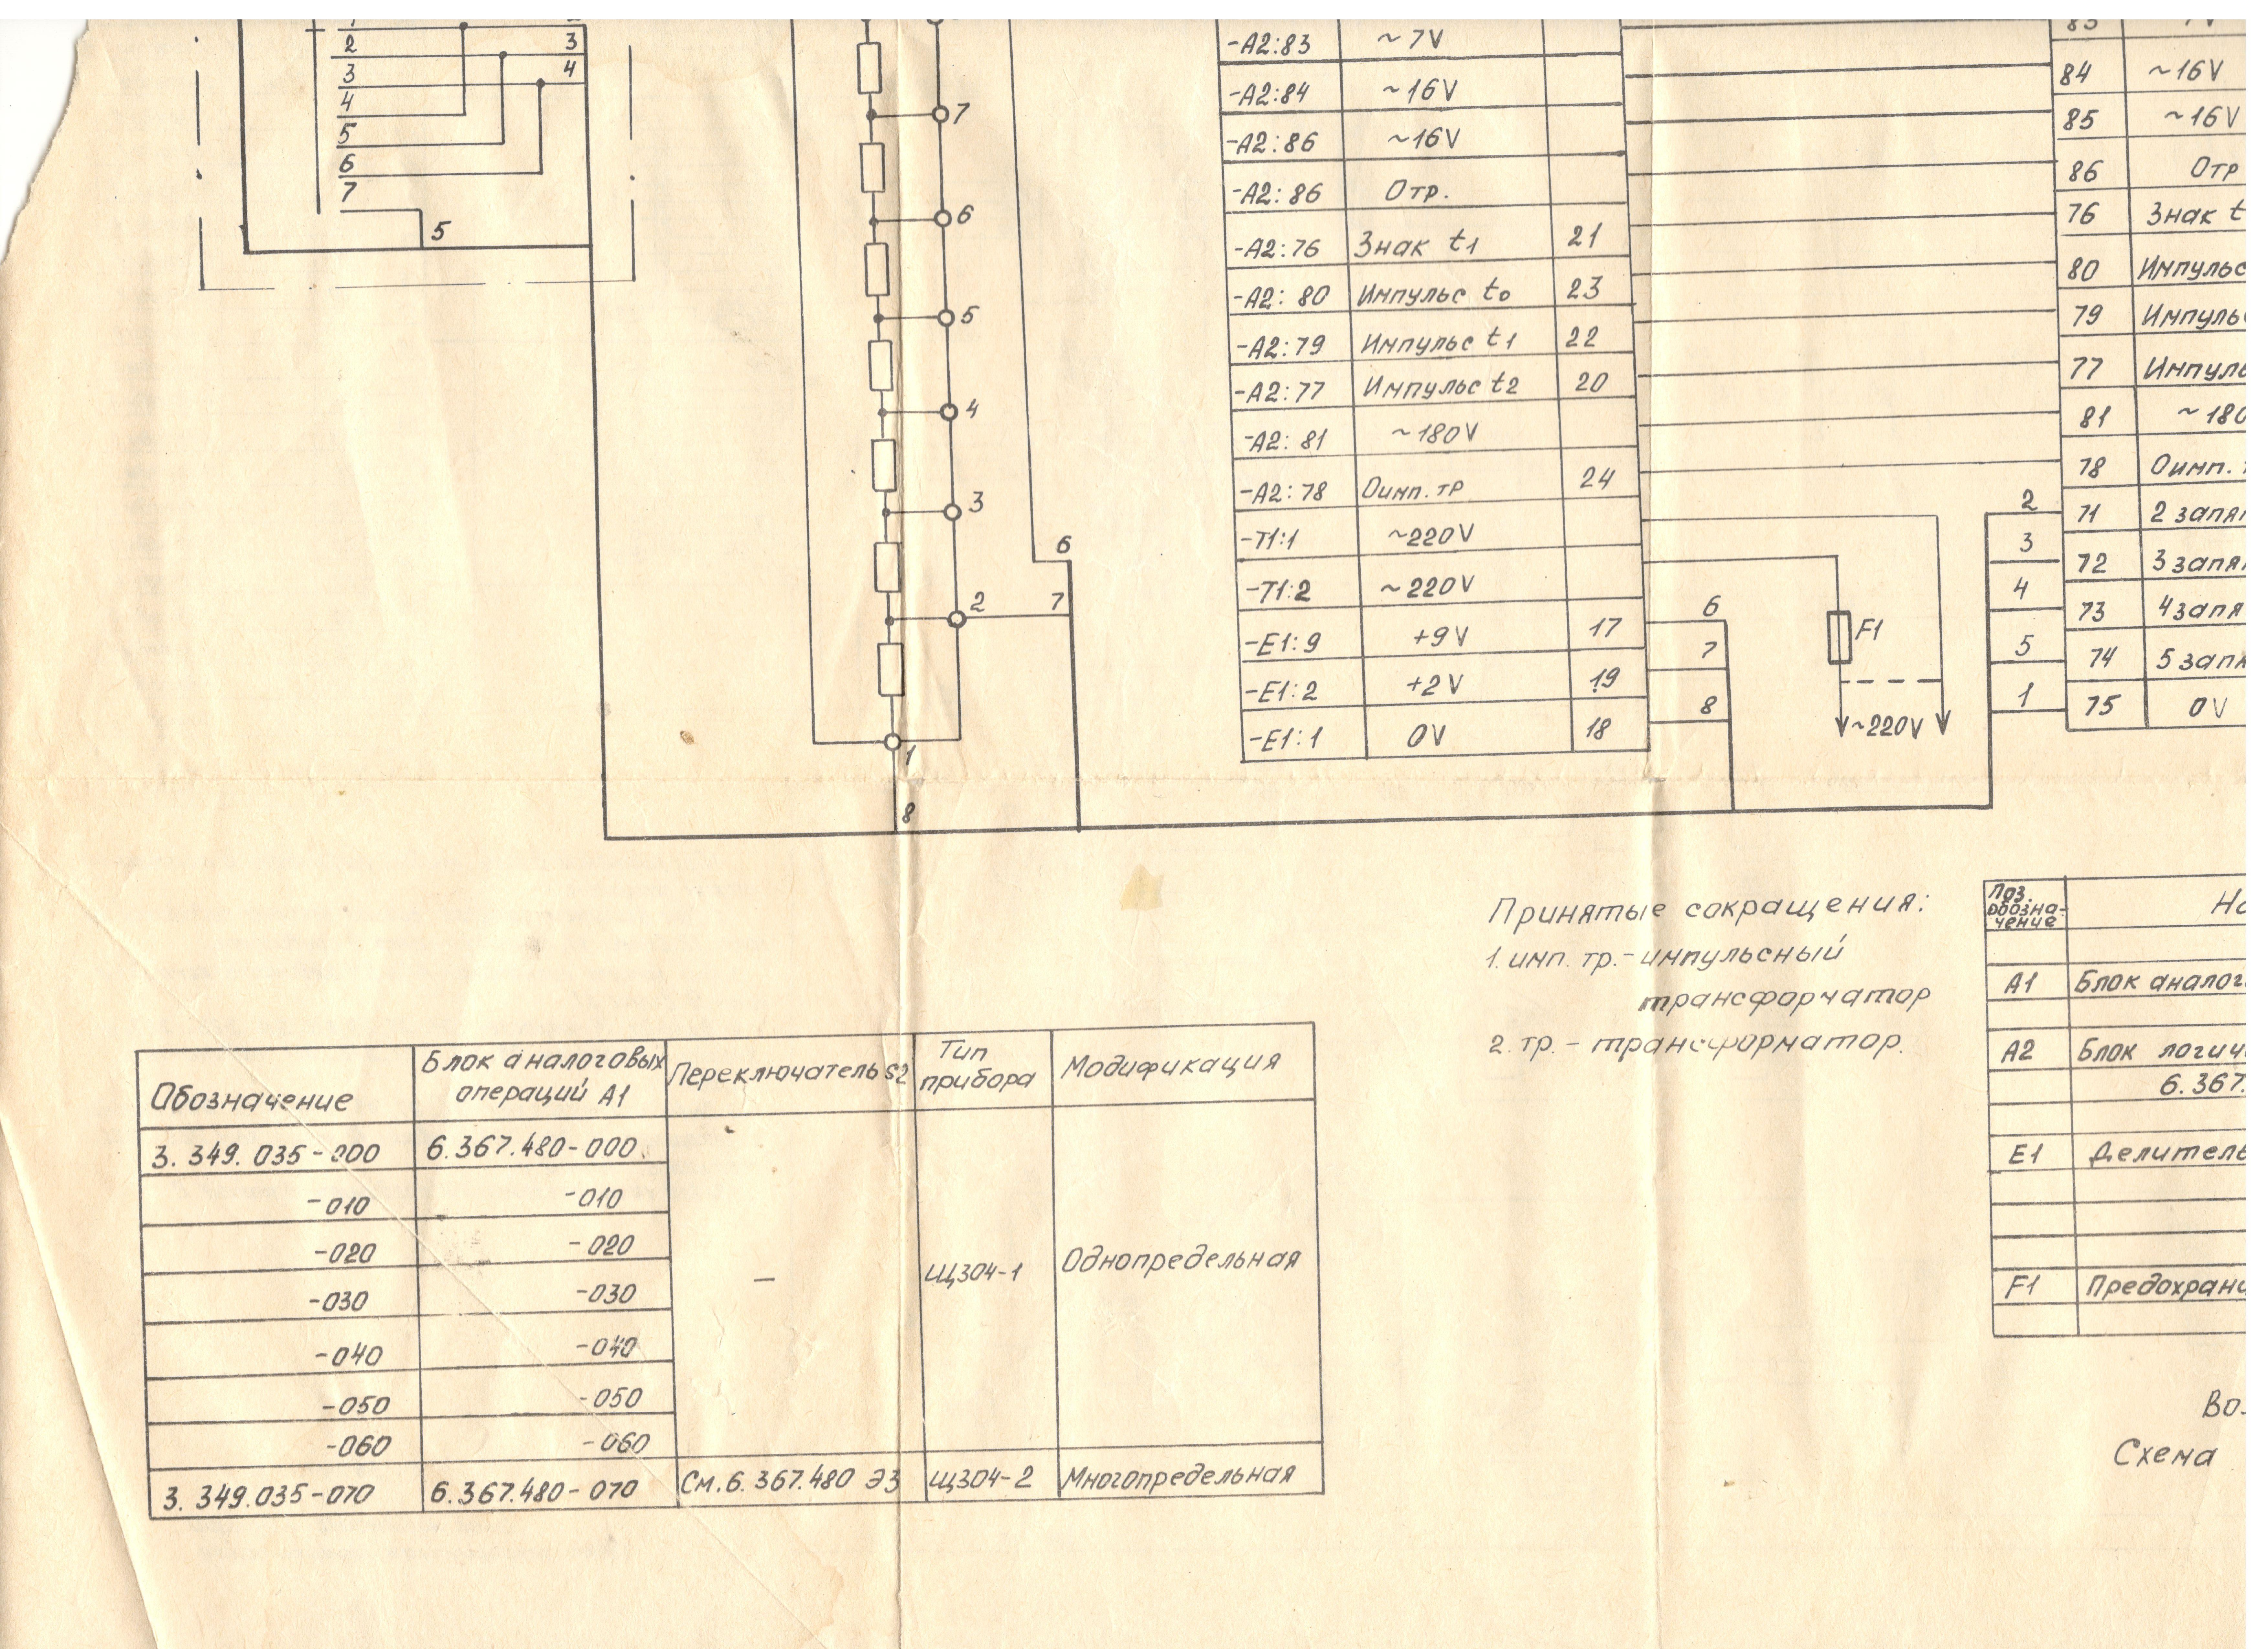 2
3
4
5
6
7
3
4
5
7
6
5
4
3
2
1
8
6
7
-А2:83 ~7V
-А2:84 ~16V
-А2:86 ~16V
-А2:86 Отр.
-А2:76 Знак t1 21
-А2:80 Импульс t0 23
-А2:79 Импульс t1 22
-А2:77 Импульс t2 20
-А2:81 ~180V
-А2:78 Оимп.тр 24
-Т1:1 ~220V
-Т1:2 ~220V
-Е1:9 +9V 17
-Е1:2 +2V 19
-Е1:1 0V 18
6
7
8
F1
~220V
2
3
4
5
1
84 ~16V
85 ~16V
86 Отр
76 Знак t
80 Импульс
79 Импульс
77 Импуль
81 ~180
78 Оимп.
71 2 запя
72 3 запя
73 4 запя
74 5 запя
75 0V
Принятые сокращения:
1. имп. тр.- импульсный
трансформатор
2. тр. - трансформатор.
Поз.
обозна-
чение
На
А1 Блок аналог
А2 Блок логич
6.367.
Е1 Делитель
F1 Предохрани
Во
Схема
Обозначение Блок аналоговых операций А1 Переключатель S2 Тип прибора Модификация
3.349.035-000 6.367.480-000
-010 -010
-020 -020
-030 -030
-040 -040
-050 -050
-060 -060
— Щ304-1 Однопредельная
3.349.035-070 6.367.480-070 См.6.367.480 Э3 Щ304-2 Многопредельная